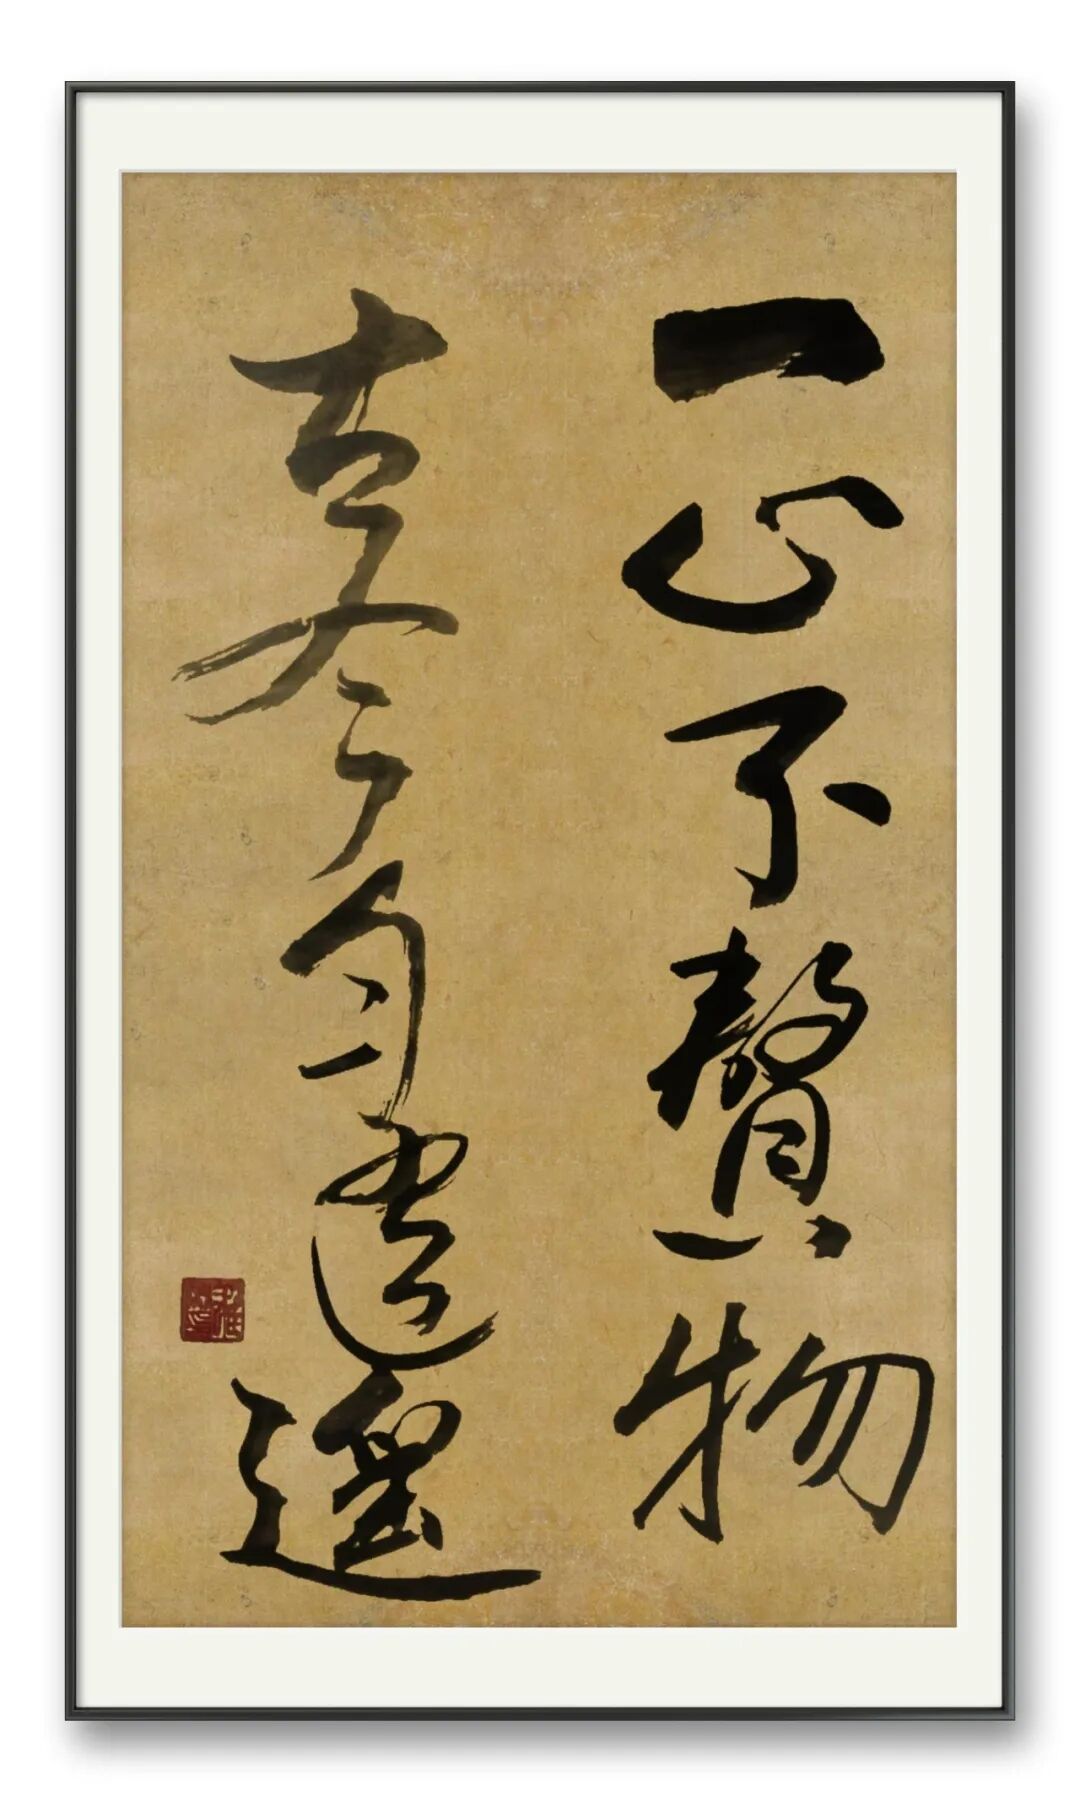 一心不贅物
古今自逍遙